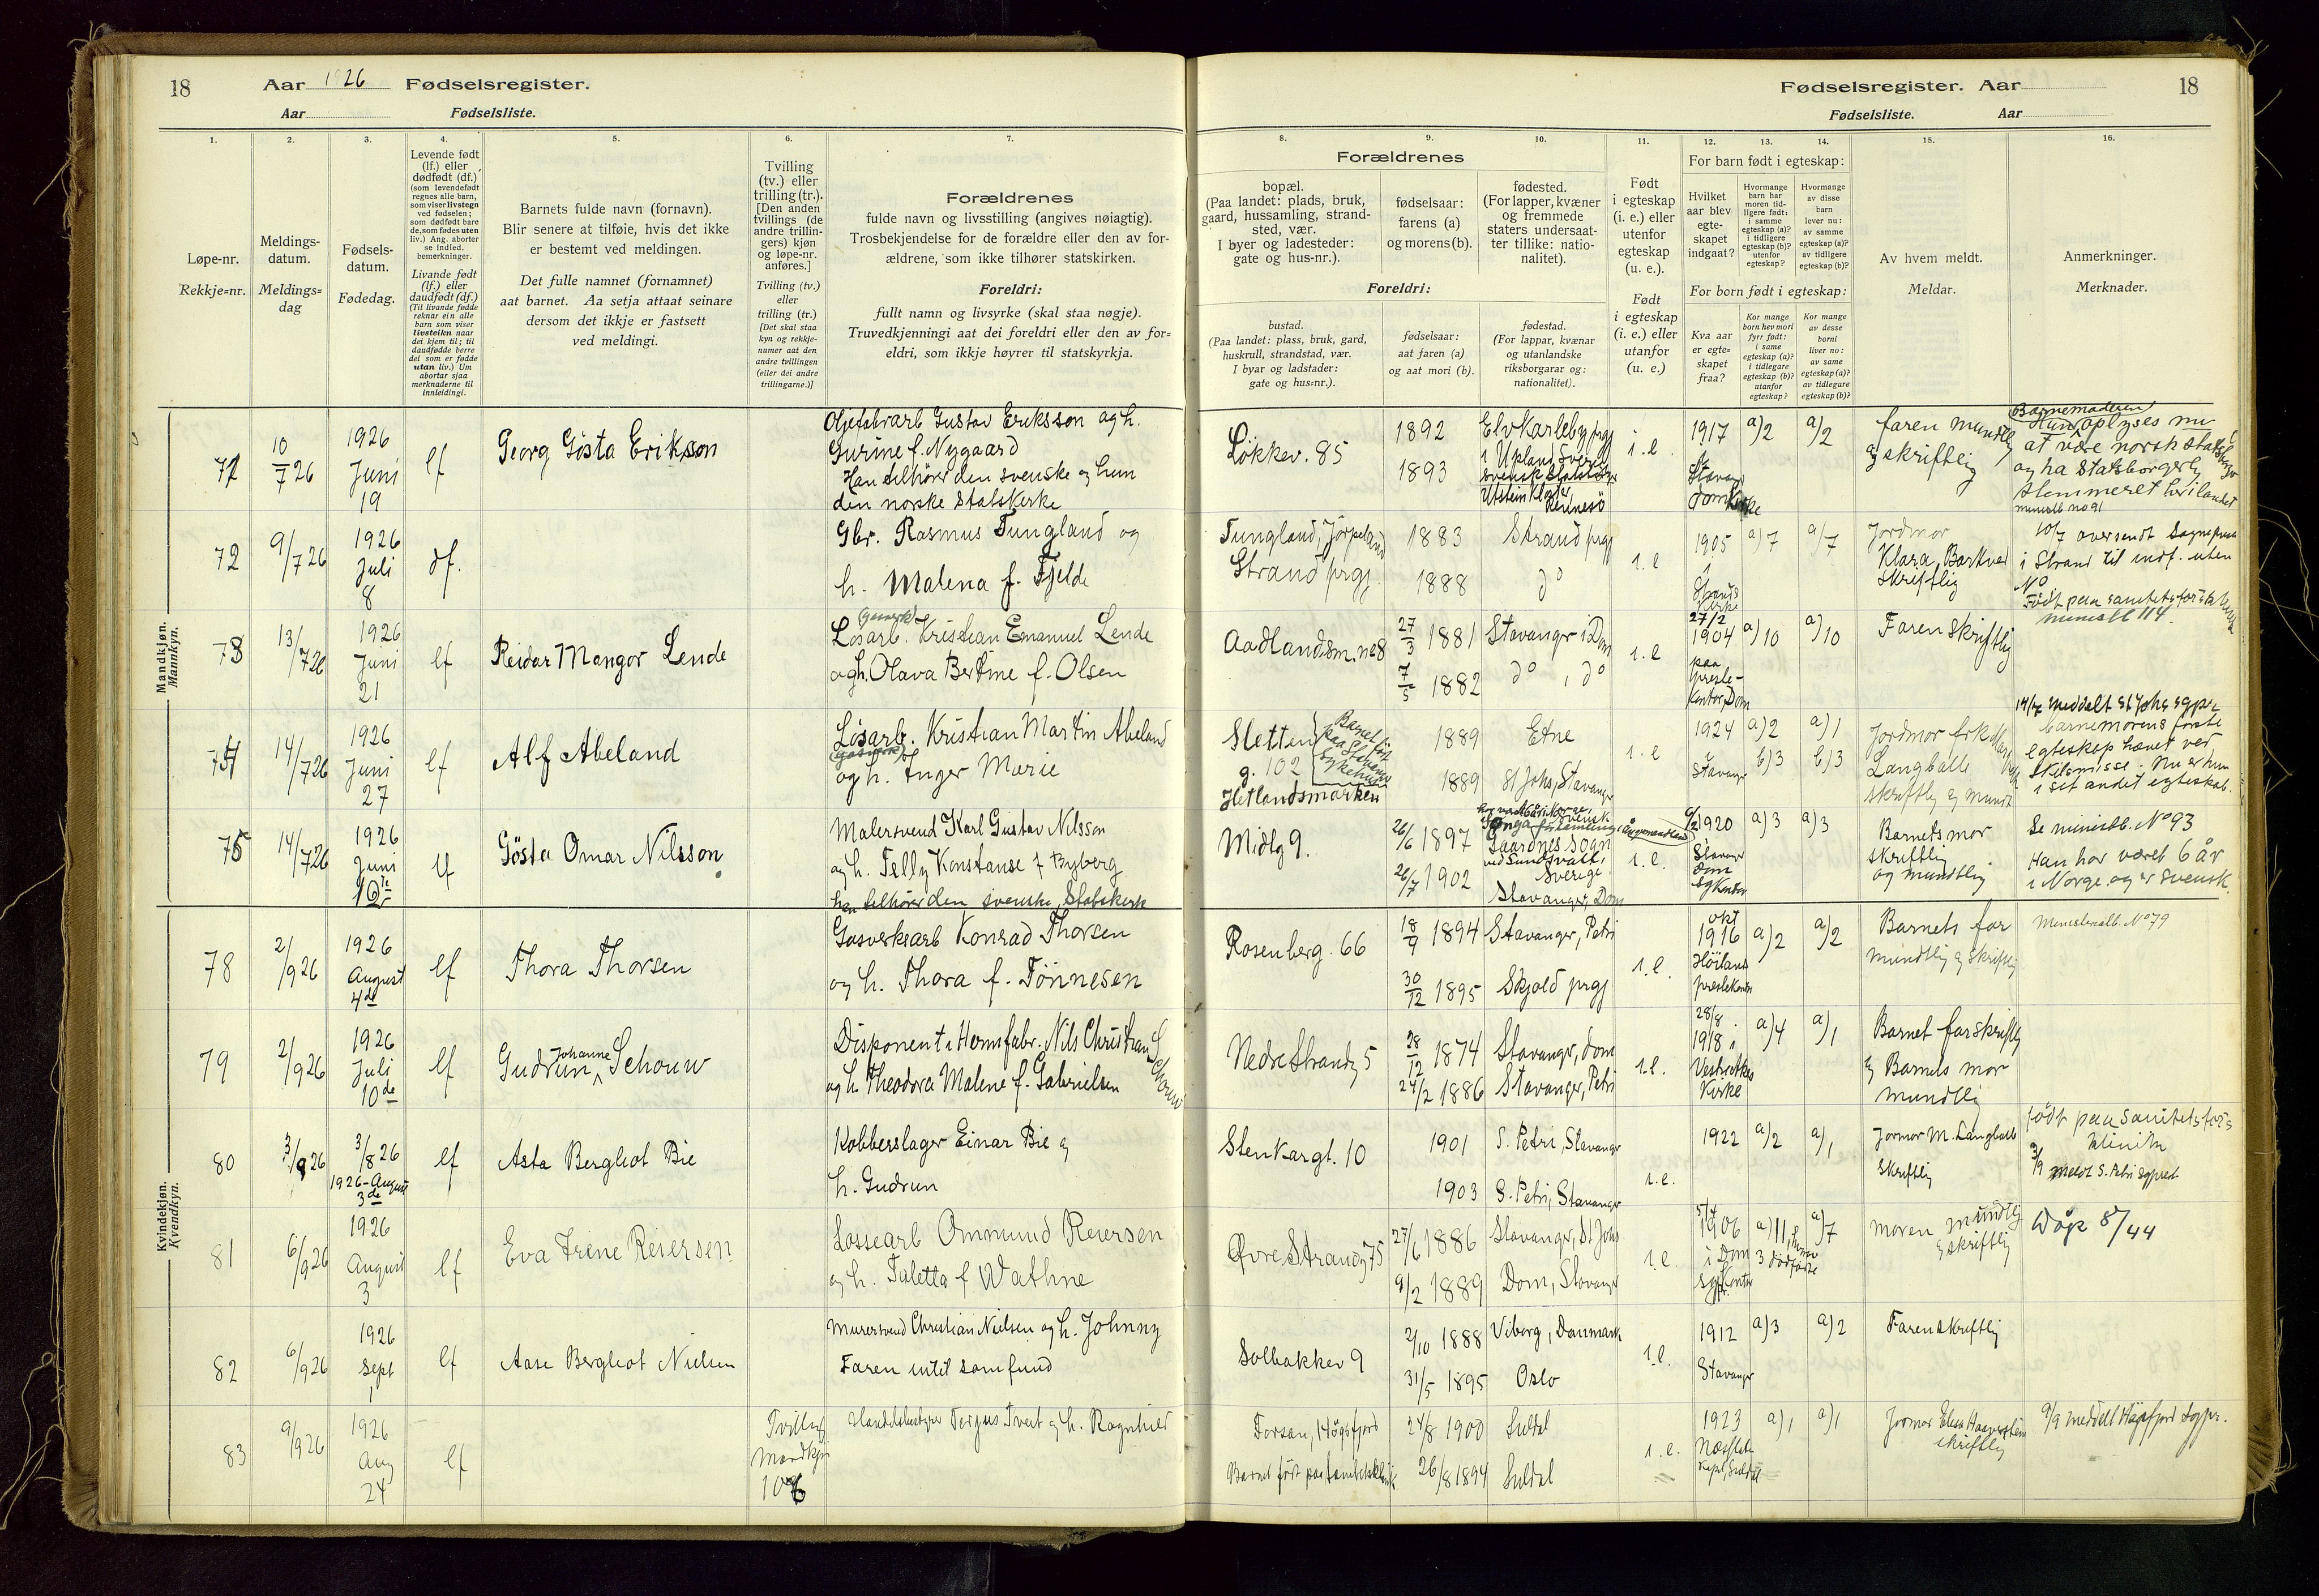 18
Aar 1926 Fødselsregister.
Aar Fødselsliste.
1.
2.
3.
4.
5.
6.
7.
Løpe-nr.
Rekkje=nr.
Meldings-
datum.
Meldings=
dag
Fødsels-
datum.
Fødedag.
Levende født
(lf.) eller
dødfødt (df.)
(som levendefødt
regnes alle barn,
som viser livstegn
ved fødselen;
som dødfødt bare
de, som fødes uten
liv.) Ang. aborter
se indled.
bemerkninger.
Livande født
(lf.) eller
daudfødt (df.)
(Til livande fødde
reknar ein alle
born som viser
livsteikn naar
dei kjem til; til
daudfødde berre
dei som er fødde
utan liv.) Um
abortar sjaa
merknaderne til
innleidingi.
Barnets fulde navn (fornavn).
Blir senere at tilføie, hvis det ikke
er bestemt ved meldingen.
Det fulle namnet (fornamnet)
aat barnet. Aa setja attaat seinare
dersom det ikkje er fastsett
ved meldingi.
Tvilling
(tv.) eller
trilling (tr.).
[Den anden
tvillings (de
andre trillin-
gers) kjøn
og løpe-nr.
anføres.]
Tvilling (tv.)
eller
trilling (tr.)
[Det skal staa
kyn og rekkje-
numer aat den
andre tvillingen
(eller dei andre
trillingarne.)]
Forældrenes
fulde navn og livsstilling (angives nøiagtig).
Trosbekjendelse for de forældre eller den av for-
ældrene, som ikke tilhører statskirken.
Foreldri:
fullt namn og livsyrke (skal staa nøgje).
Truvedkjenningi aat dei foreldri eller den av for=
eldri, som ikkje høyrer til statskyrkja.
Mandkjøn.
Mannkyn.
71
10/7 26
1926
Juni
19
lf
Georg Gösta Erikson
Gustav Eriksson og h.
Gurine f. Nygaard
Han tilhörer den svenske og hun
den norske Statskirke
72
9/7 26
1926
Juli
8
df.
Gbr. Rasmus Tungland og
h. Malena f. Fjelde
73
13/7 26
1926
Juni
21
lf
Reidar Mangor Lende
(gasverk)
Løsarb. Kristian Emanuel Lende
og h. Olava Bertine f. Olsen
74
14/7 26
1926
Juni
27
lf
Alf Abeland
Løsarb. Kristian Martin Abeland
(gasverk)
og h. Inger Marie
75
14/7 26
1926
Juni
lf
Gösta Omar Nilsson
Malersvend Karl Gustav Nilsson
og h. Telly Konstanse f Byberg
han tilhører den svenske Statskirke
Kvindekjøn.
Kvendkyn.
78
2/9 26
1926
August
4de
lf
Thora Thorsen
Gasverksarb Konrad Thorsen
og h. Thora f. Tönnesen
79
2/9 26
1926
Juli
10de
lf
Johanne
Gudrun Schouw
Disponent i Hermfabr. Nils Christian Schouw
og h. Theodora Malene f. Gabrielsen
80
3/9 26
3/8 26
1926-August
3de
lf
Asta Bergliot Bie
Kobberslager Einar Bie og
h. Gudrun
81
6/9 26
1926
August
3
lf
Eva Irene Reiersen
Lossearb Ommund Reiersen
og h. Taletta f Wathne
82
6/9 26
1926
Sept
1
lf
Aase Bergliot Nielsen
Murersvend Christian Nielsen og h. Johnny
Faren intet samfund
83
9/9 26
1926
Aug
24
lf
Tvilling
Mandkjøn
106
Handelsbestyrer Tveit og h. Ragnhild
Fødselsregister. Aar
18
Fødselsliste. Aar
8.
9.
10.
11.
12.
13.
14.
15.
16.
Forældrenes
bopæl.
(Paa landet: plads, bruk,
gaard, hussamling, strand-
sted, vær.
I byer og ladesteder:
gate og hus-nr.).
fødselsaar:
farens (a)
og morens (b).
fødested.
(For lapper, kvæner
og fremmede
staters undersaat-
ter tillike: natio-
nalitet).
Foreldri:
bustad.
(Paa landet: plass, bruk, gard,
huskrull, strandstad, vær.
I byar og ladstader:
gate og hus=nr.).
fødselsaar:
aat faren (a)
og aat mori (b).
fødestad.
(For lappar, kvænar
og utanlandske
riksborgarar og:
nationalitet).
Født
i egteskap
(i. e.) eller
utenfor
egteskap
(u. e.).
Født
i egteskap
(i. e.) eller
utanfor
(u. e.)
For barn født i egteskap:
Hvilket
aar blev
egte-
skapet
indgaat?
Hvormange
barn har
moren tid-
ligere født:
i samme
egteskap (a)?
i tidligere
egteskap (b)?
utenfor
egteskap?
Hvormange
av disse
barn
lever nu:
av samme
egteskap (a)?
av tidligere
egteskap (b)?
For born født i egteskap:
Kva aar
er egte=
skapet
fraa?
Kor mange
born hev mori
fyrr født:
i same
egteskap (a)?
i tidlegare
egteskap (b)?
utanfor
egteskap?
Kor mange
av desse
borni
liver no:
av same
egteskap (a)?
av tidlegare
egteskap (b)?
Av hvem meldt.
Meldar.
Anmerkninger.
Merknader.
Løkkev. 85
1892
1893
Elvkarleby prgj
i Upland Sverig
Utstein Kloster
Rennesö
i. e.
1917
Stavanger
Domkirke
a) 2
a) 2
faren mundtlig
og skriftlig
Barnemoderen
oplyses nu
at være norsk Statsborger
og ha Statsborgerlig
hjemmeret her i landet
ministb no 91
Tungland, Jörpeland
Strand prgj.
1883
1888
Strand prgj
do
i. e
1905
i
Strands
Kirke
a) 7
a) 7
Jordmor
Klara Barkved
Skriftlig
10/7 oversendt Sogneprest
i Strand til indf. uten
No
Aadlandsm. no 8
27/3 1881
7/5 1882
Stavanger i Dom
do, do
i. e
27/2
1904
paa
preste-
kontor, Dom
a) 10
a) 10
Faren Skriftlig
Født paa sanitetsfor klinik
ministb 114.
Sletten
g. 102
Hetlandsmarken
Barnet født
paa Stavanger
Sykehus
1889
1889
Etne
St Johs, Stavanger
i. e
1924
i
Stavanger
a) 2
b) 3
a) 1
b) 3
Jordmor frk
Langballe
skriftlig og mundt
14/7 meddelt St Johs sgpr.
barnemorens første
egteskap hævet ved
skilsmisse. Nu er hun
i sit andet egteskab.
Midlg 9.
26/6 1897
26/7 1902
ved Sundsvall,
Sverige.
Stavanger, Dom
i. e.
6/2 1920
Stavanger
Dom
sgkontor
a) 3
a) 3
Barnets mor
skriftlig
og mundtlig
Se ministb. No 93
Han har været 6 år
i Norge og er Svensk.
Rosenberg. 66
18/9 1894
30/12 1895
Stavanger, Petri
Skjold prgj
i. e.
okt
1916
Höiland
prestekontor
a) 2
a) 2
Barnets far
mundtlig og Skriftlig
Ministerialb. No 79
Nedre Strandg 5
28/12 1874
24/2 1886
Stavanger, Dom
Stavanger, Petri
i. e.
28/8
1918 i
Kirke
a) 4
a) 1
Barnet far skriftlig
og Barnets mor
mundtlig
Stenkargt. 10
1901
1903
S. Petri, Stavanger
S. Petri, Stavanger
i. e.
1922
a) 2
a) 1
Jormor M. Langballe
skriftlig
født paa Sanitetsfors
klinikk
3/9 meldt S. Petri sgprest
Øvre Strandg 75
27/6 1886
9/2 1889
Stavanger, St Johs
Dom, Stavanger
i. e.
1906
i Dom
sgpr. kontor
a) 11, hvorav
3 dødfødte
a) 7
moren mundtlig
og skriftlig
Døpt 8/44
Solbakkev 9
2/10 1888
31/5 1895
Viborg, Danmark
Oslo
i. e.
1912
Stavanger
a) 3
a) 2
Faren skriftlig
Forsan, Høgsfjord
Barnet født paa Sanitetsklinik
24/8 1900
26/8 1894
Suldal
Suldal
i. e.
1923
Næsflaten
Kapel, Suldal
a) 1
a) 1
Jormor
skriftlig
9/9 meddelt Høgsfjord sogpr.